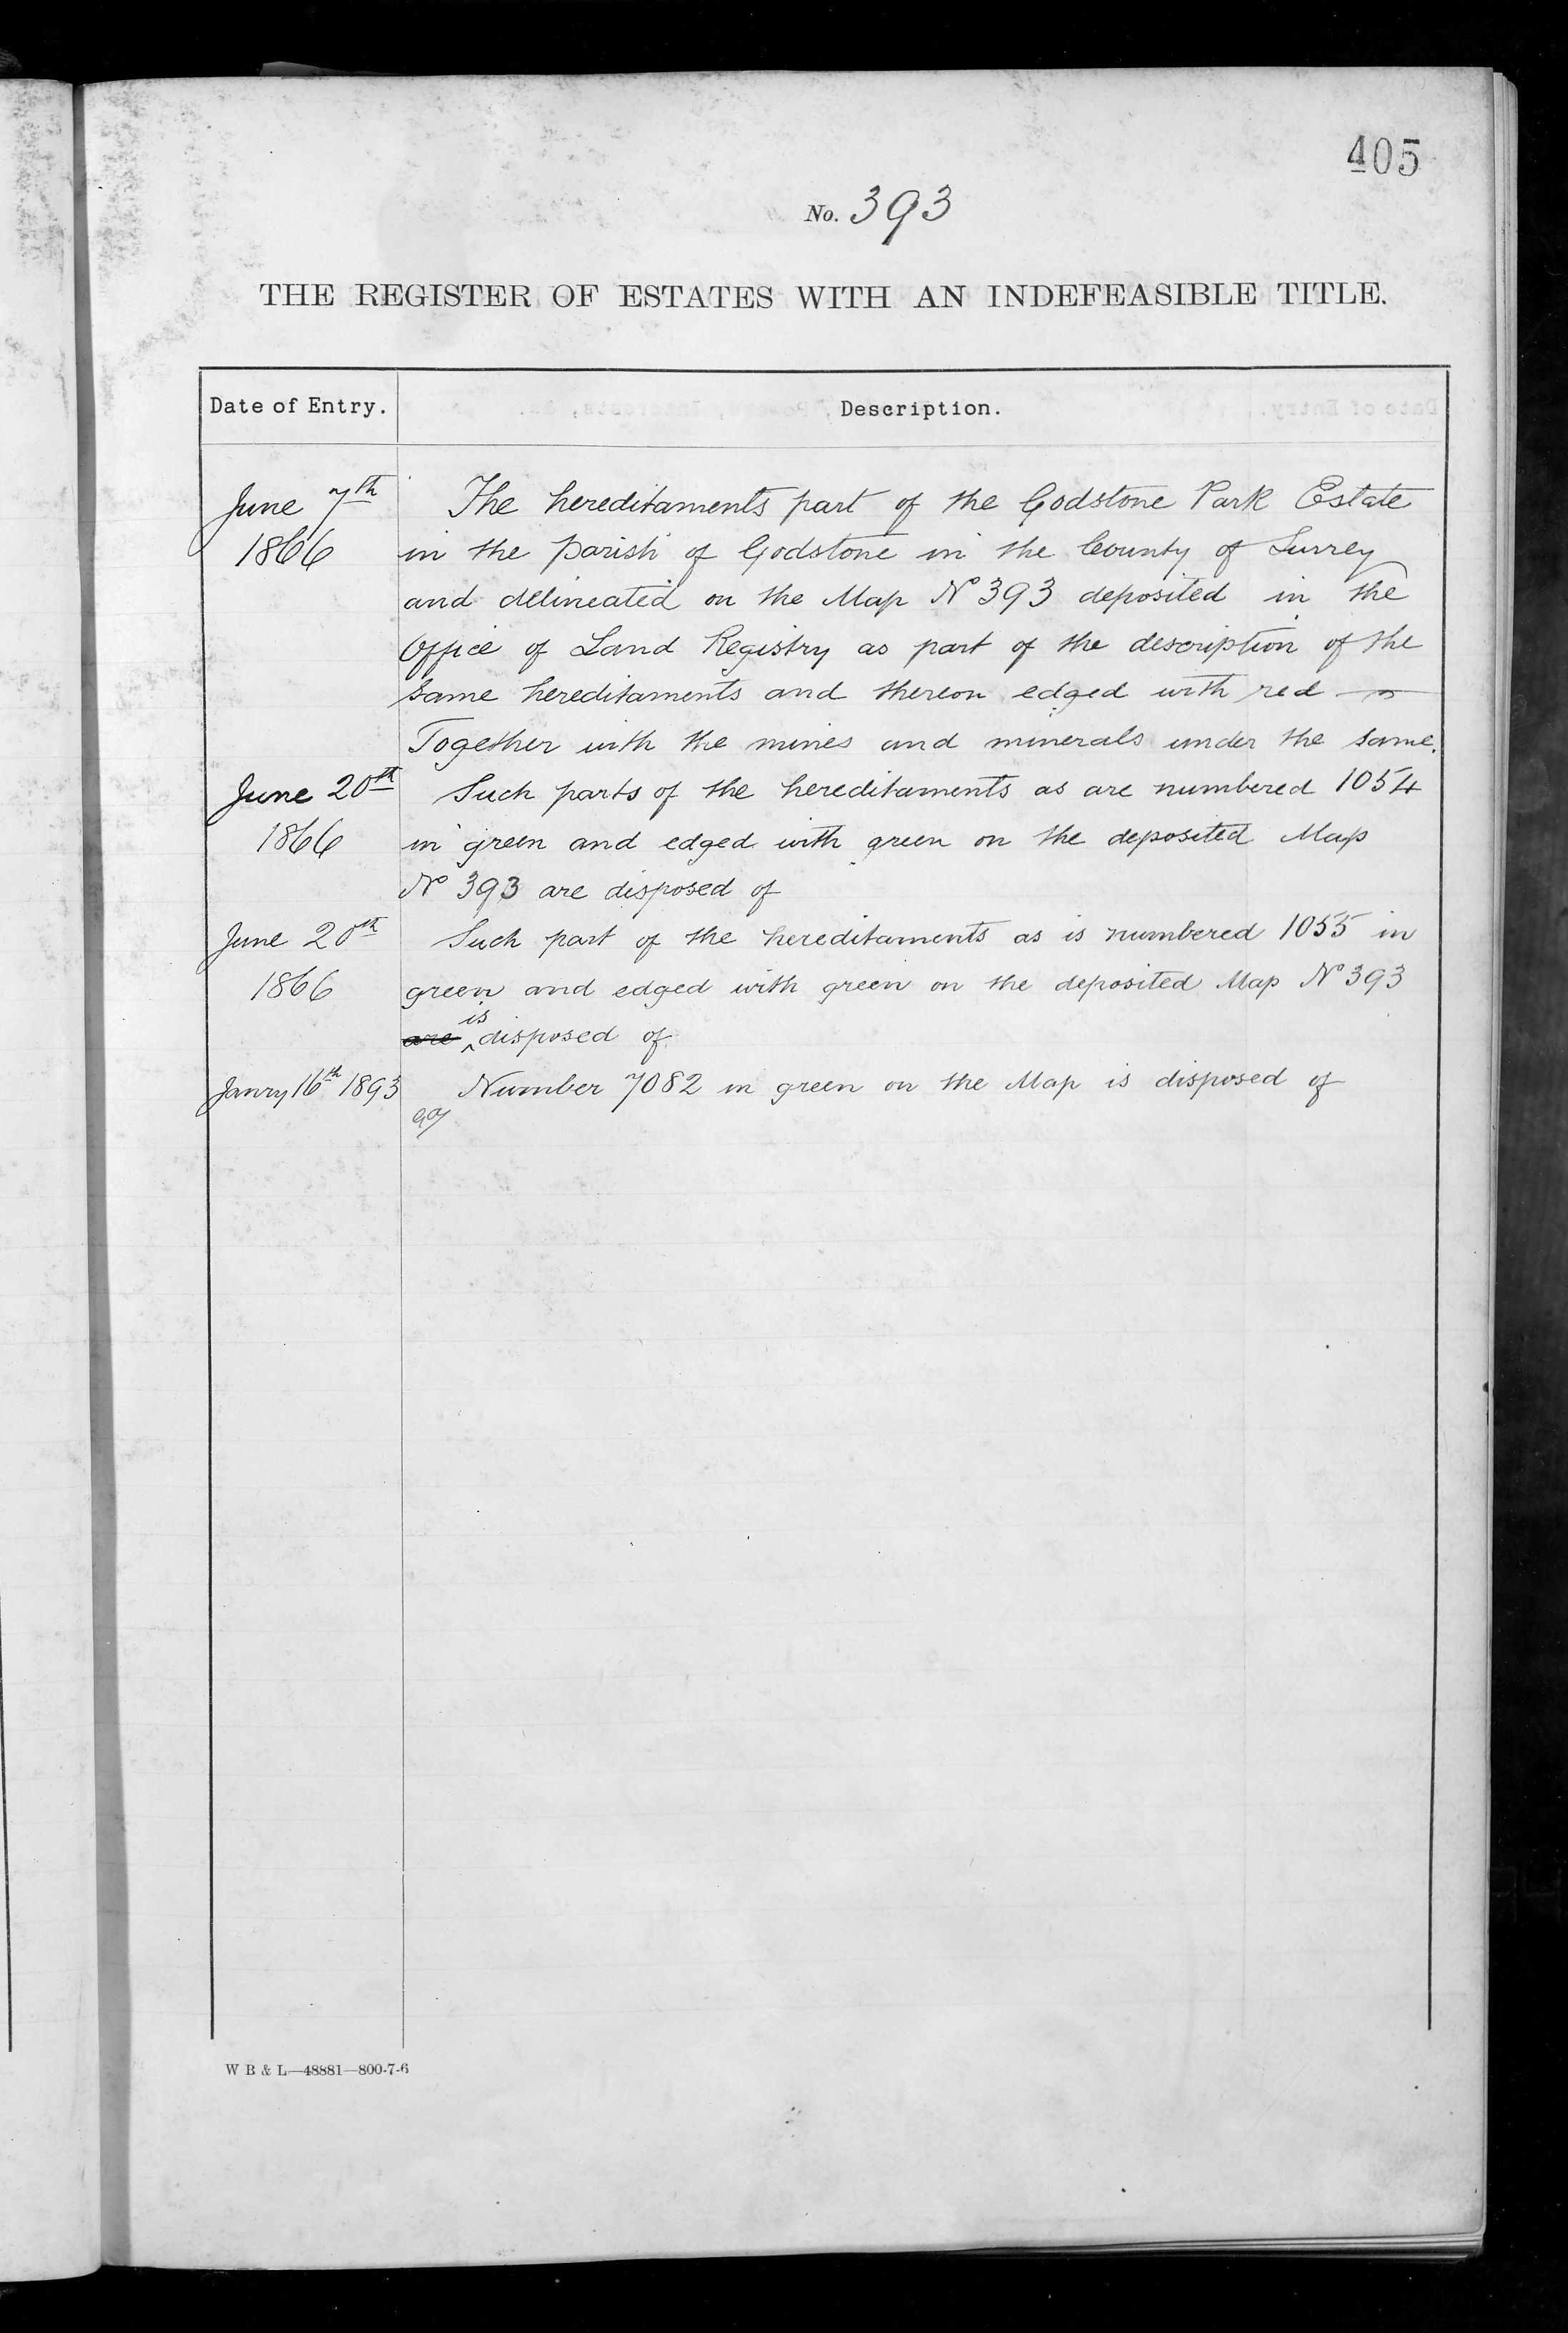 405
No. 393
THE REGISTER OF ESTATES WITH AN INDEFEASIBLE TITLE.
Date of Entry. Description.
June 7th The hereditaments part of the Godstone Park Estate
1866 in the parish of Godstone in the County of Surrey
and delineated on the Map No 393 deposited in the
Office of Land Registry as part of the description of the
same hereditaments and thereon edged with red —
Together with the mines and minerals under the same.
June 20th Such parts of the hereditaments as are numbered 1054
1866 in green and edged with green on the deposited Map
No 393 are disposed of
June 20th Such part of the hereditaments as is numbered 1055 in
1866 green and edged with green on the deposited Map No 393
are ^is disposed of
Janry 16th 1893 Number 7082 in green on the Map is disposed of
W B & L—48881—800-7-6